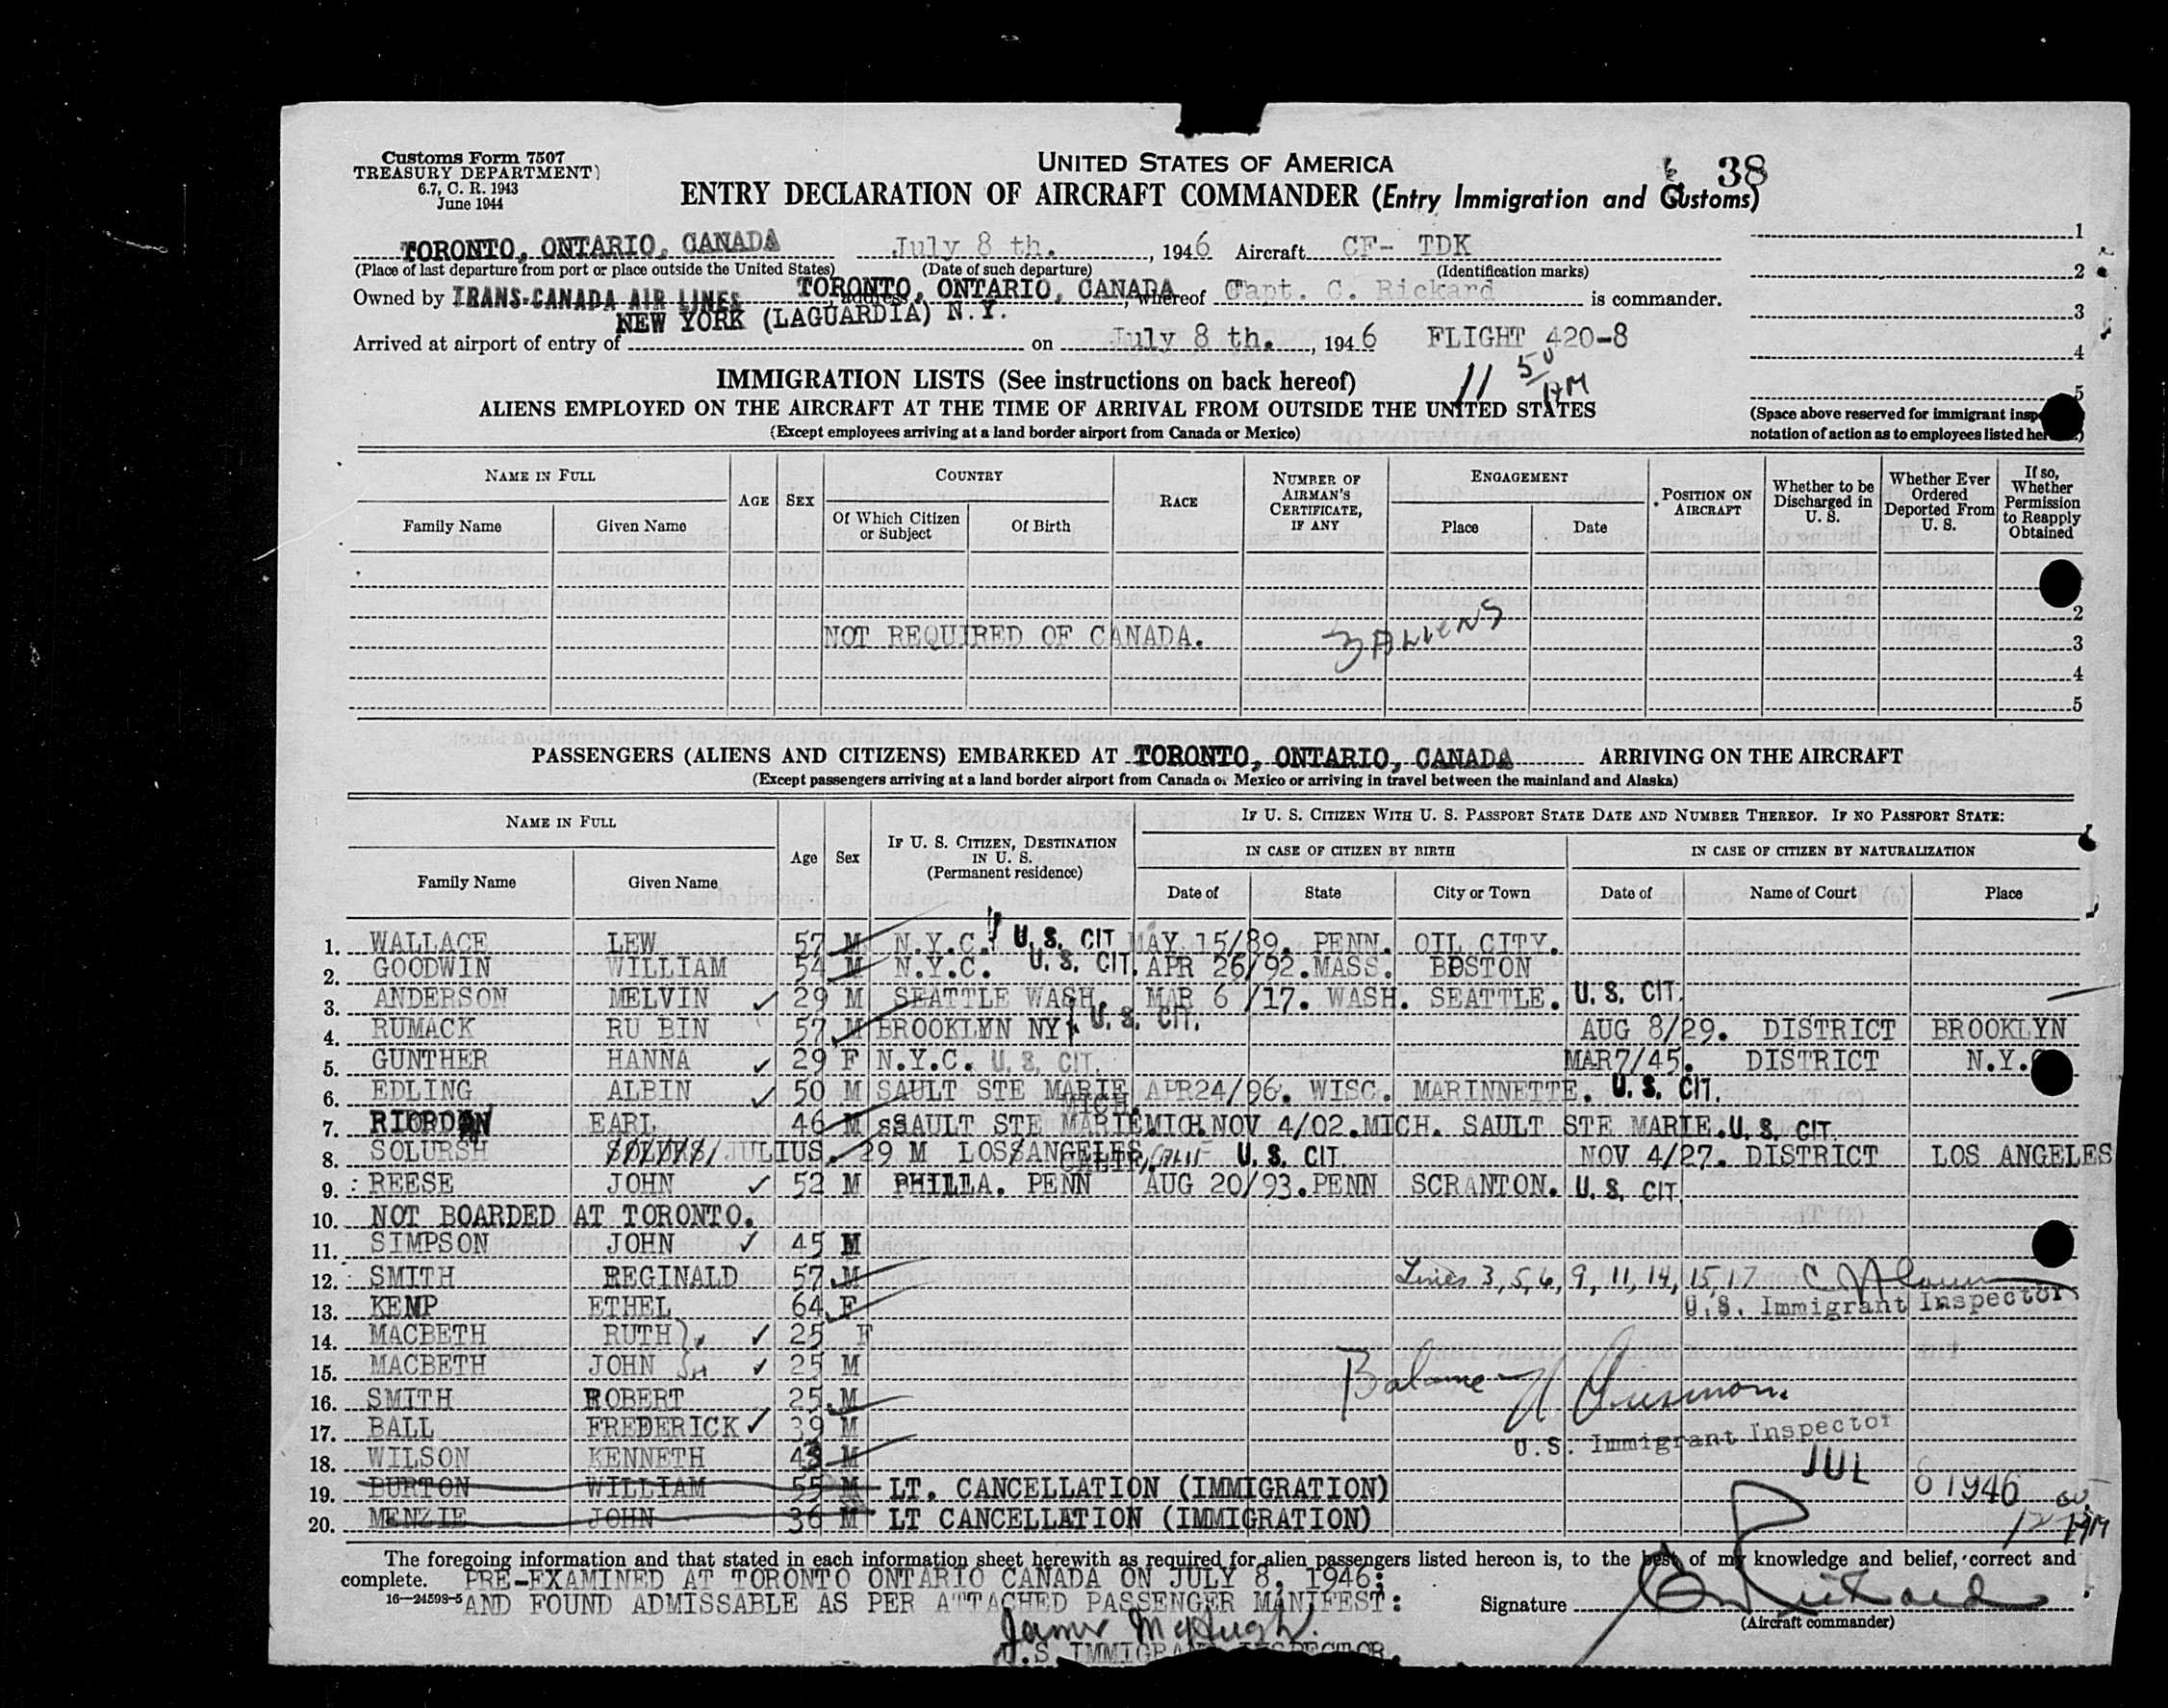 Customs Form 7507
TREASURY DEPARTMENT
6.7, C. R. 1943
June 1944
UNITED STATES OF AMERICA
38
ENTRY DECLARATION OF AIRCRAFT COMMANDER (Entry Immigration and Customs)
TORONTO, ONTARIO, CANADA July 8 th., 1946 Aircraft CF- TDK
(Place of last departure from port or place outside the United States) (Date of such departure) (Identification marks)
Owned by TRANS-CANADA AIR LINES, address TORONTO, ONTARIO, CANADA, whereof Capt. C. Rickard is commander.
NEW YORK (LAGUARDIA) N.Y.
Arrived at airport of entry of on July 8 th., 1946 FLIGHT 420-8
1
2
3
4
5
11 50 AM
IMMIGRATION LISTS (See instructions on back hereof)
ALIENS EMPLOYED ON THE AIRCRAFT AT THE TIME OF ARRIVAL FROM OUTSIDE THE UNITED STATES
(Except employees arriving at a land border airport from Canada or Mexico)
(Space above reserved for immigrant
notation of action as to employees listed
NAME IN FULL
Family Name Given Name
AGE SEX
COUNTRY
Of Which Citizen or Subject Of Birth
RACE
NUMBER OF AIRMAN'S CERTIFICATE, IF ANY
ENGAGEMENT
Place Date
POSITION ON AIRCRAFT
Whether to be Discharged in U. S.
Whether Ever Ordered Deported From U. S.
If so, Whether Permission to Reapply Obtained
2
NOT REQUIRED OF CANADA. 3 ALIENS 3
4
5
PASSENGERS (ALIENS AND CITIZENS) EMBARKED AT TORONTO, ONTARIO, CANADA ARRIVING ON THE AIRCRAFT
(Except passengers arriving at a land border airport from Canada or Mexico or arriving in travel between the mainland and Alaska)
NAME IN FULL
Family Name Given Name
Age Sex
IF U. S. CITIZEN, DESTINATION IN U. S. (Permanent residence)
IF U. S. CITIZEN WITH U. S. PASSPORT STATE DATE AND NUMBER THEREOF. IF NO PASSPORT STATE:
IN CASE OF CITIZEN BY BIRTH IN CASE OF CITIZEN BY NATURALIZATION
Date of State City or Town Date of Name of Court Place
1. WALLACE LEW 57 M N.Y.C. U.S. CIT MAY 15/89. PENN. OIL CITY.
2. GOODWIN WILLIAM 54 M N.Y.C. U.S. CIT. APR 26/92. MASS. BOSTON
3. ANDERSON MELVIN ✓ 29 M SEATTLE WASH. MAR 6 /17. WASH. SEATTLE. U.S. CIT.
4. RUMACK RU BIN 57 M BROOKLYN NY U.S. CIT. AUG 8/29. DISTRICT BROOKLYN
5. GUNTHER HANNA ✓ 29 F N.Y.C. U.S. CIT. MAR7/45. DISTRICT N.Y.
6. EDLING ALBIN ✓ 50 M SAULT STE MARIE MICH. APR24/96. WISC. MARINNETTE. U.S. CIT.
7. RIORDAN EARL 46 M SSAULT STE MARIE MICH. NOV 4/02. MICH. SAULT STE MARIE. U.S. CIT.
8. SOLURSH JULIUS. 29 M LOS ANGELES CALIF. CALIF U.S. CIT. NOV 4/27. DISTRICT LOS ANGELES
9. REESE JOHN ✓ 52 M PHILLA. PENN AUG 20/93. PENN SCRANTON. U.S. CIT.
10. NOT BOARDED AT TORONTO.
11. SIMPSON JOHN ✓ 45 M
12. SMITH REGINALD 57 M Lines 3, 5, 6, 9, 11, 14, 15, 17
13. KEMP ETHEL 64 F U.S. Immigrant Inspector
14. MACBETH RUTH ✓ 25 F
15. MACBETH JOHN ✓ 25 M
16. SMITH ROBERT 25 M Balance
17. BALL FREDERICK ✓ 39 M U.S. Immigrant Inspector
18. WILSON KENNETH 43 M
JUL 8 1946
19. BURTON WILLIAM 55 M LT. CANCELLATION (IMMIGRATION)
20. MENZIE JOHN 36 M LT CANCELLATION (IMMIGRATION)
The foregoing information and that stated in each information sheet herewith as required for alien passengers listed hereon is, to the best of my knowledge and belief, correct and
complete. PRE-EXAMINED AT TORONTO ONTARIO CANADA ON JULY 8, 1946;
16—24598-5 AND FOUND ADMISSABLE AS PER ATTACHED PASSENGER MANIFEST: Signature C Rickard
(Aircraft commander)
James McHugh
U.S IMMIGRANT INSPECTOR.